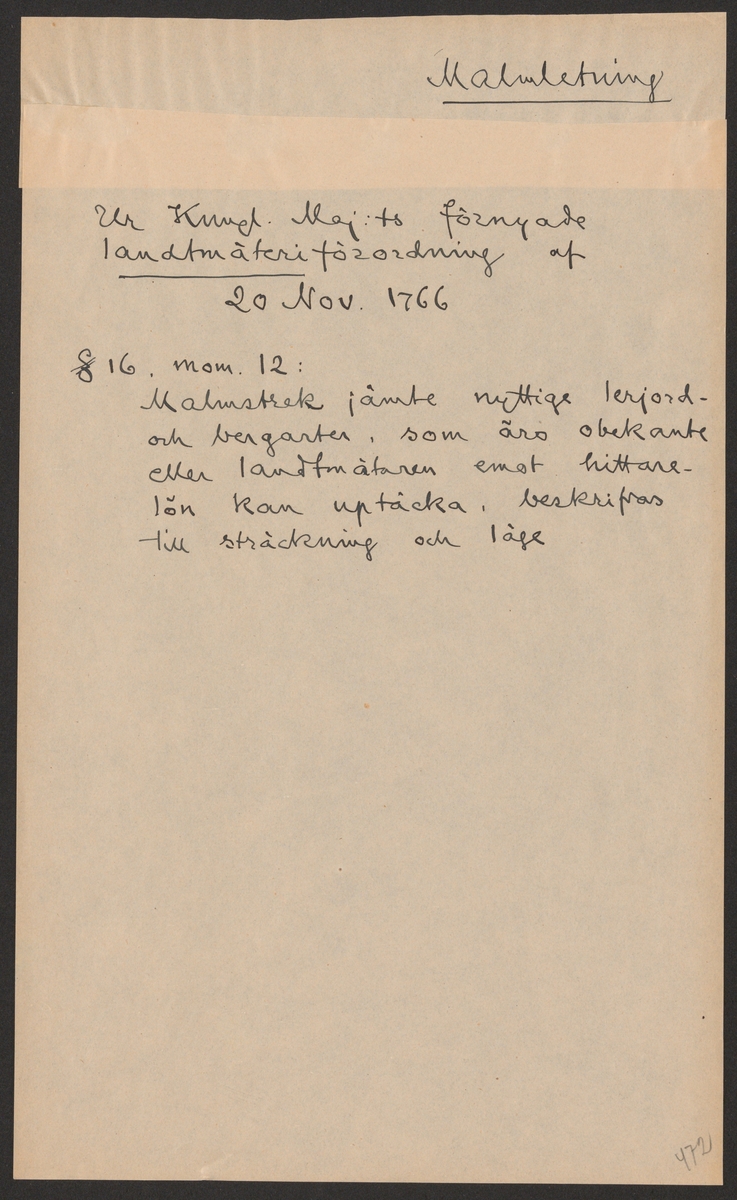 Malmletning
Ur Kungl. Maj:ts förnyade
landtmäteriförordning af
20 Nov. 1766
§ 16, mom. 12:
Malmstrek jämte nyttige lerjord-
och bergarter, som äro obekante
eller landtmätaren emot hittare-
lön kan uptäcka, beskrifvas
till sträckning och läge
472